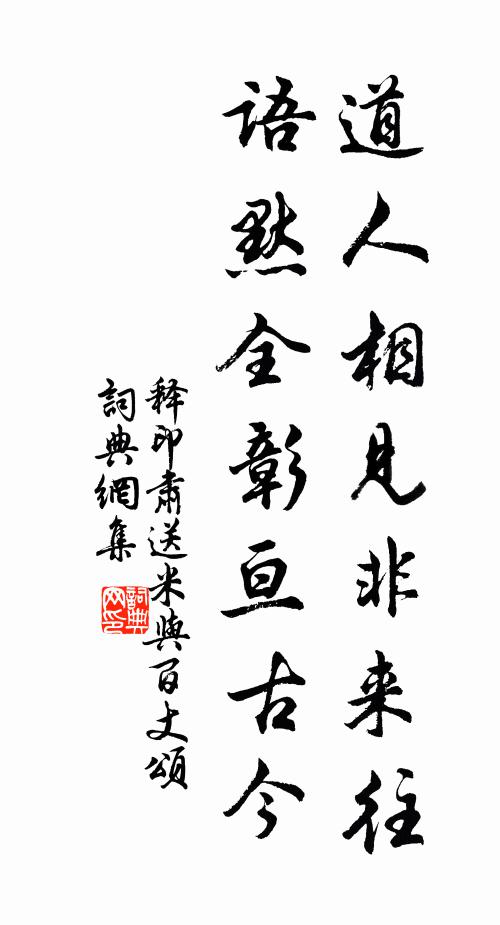 道人相見非来往
語默全彰亘古今
释印肅送米與百丈頌
詞典網集
詞典网印